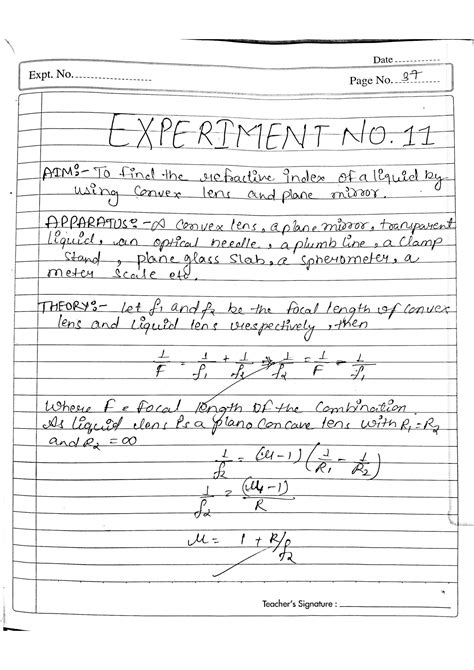 Date
Expt. No.
Page No. 37
EXPERIMENT NO. 11
AIM:- To find the refractive index of a liquid by
using convex lens and plane mirror.
APPARATUS:- A convex lens, a plane mirror, transparent
liquid, an optical needle, a plumb line, a clamp
stand, plane glass slab, a spherometer, a
meter scale etc.
THEORY:- let f₁ and f₂ be the focal length of convex
lens and liquid lens respectively, then
1/F = 1/f₁ + 1/f₂ ⇒ 1/f₂ = 1/F - 1/f₁
Where F = focal length of the combination.
As liquid lens is a plano concave lens with R₁ = R₂
and R₂ = ∞
1/f₂ = (μ-1) (1/R₁ - 1/R₂)
1/f₂ = (μ-1)/R
μ = 1 + R/f₂
Teacher's Signature :